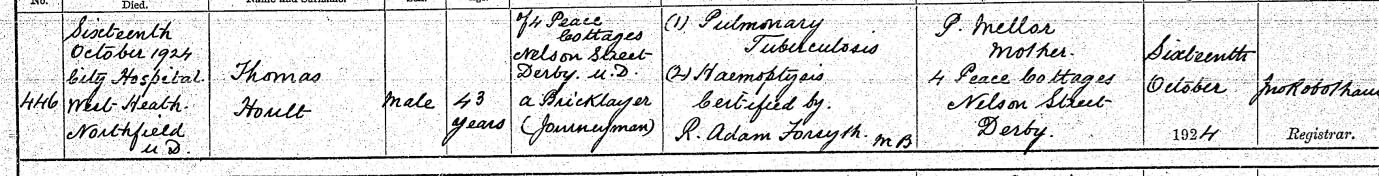 No.
Died.
Name and Surname.
446
Sixteenth
October 1924
City Hospital.
West Heath.
Northfield
U.D.
Thomas
Hoult
Male
43
years
of 4 Peace
Cottages
Nelson Street
Derby. U.D.
a Bricklayer
(Journeyman)
(1) Pulmonary
Tuberculosis
(2) Haemoptysis
Certified by.
R. Adam Forsyth. MB
P. Mellor
Mother.
4 Peace Cottages
Nelson Street
Derby.
Sixteenth
October
1924
Jno Robotham
Registrar.